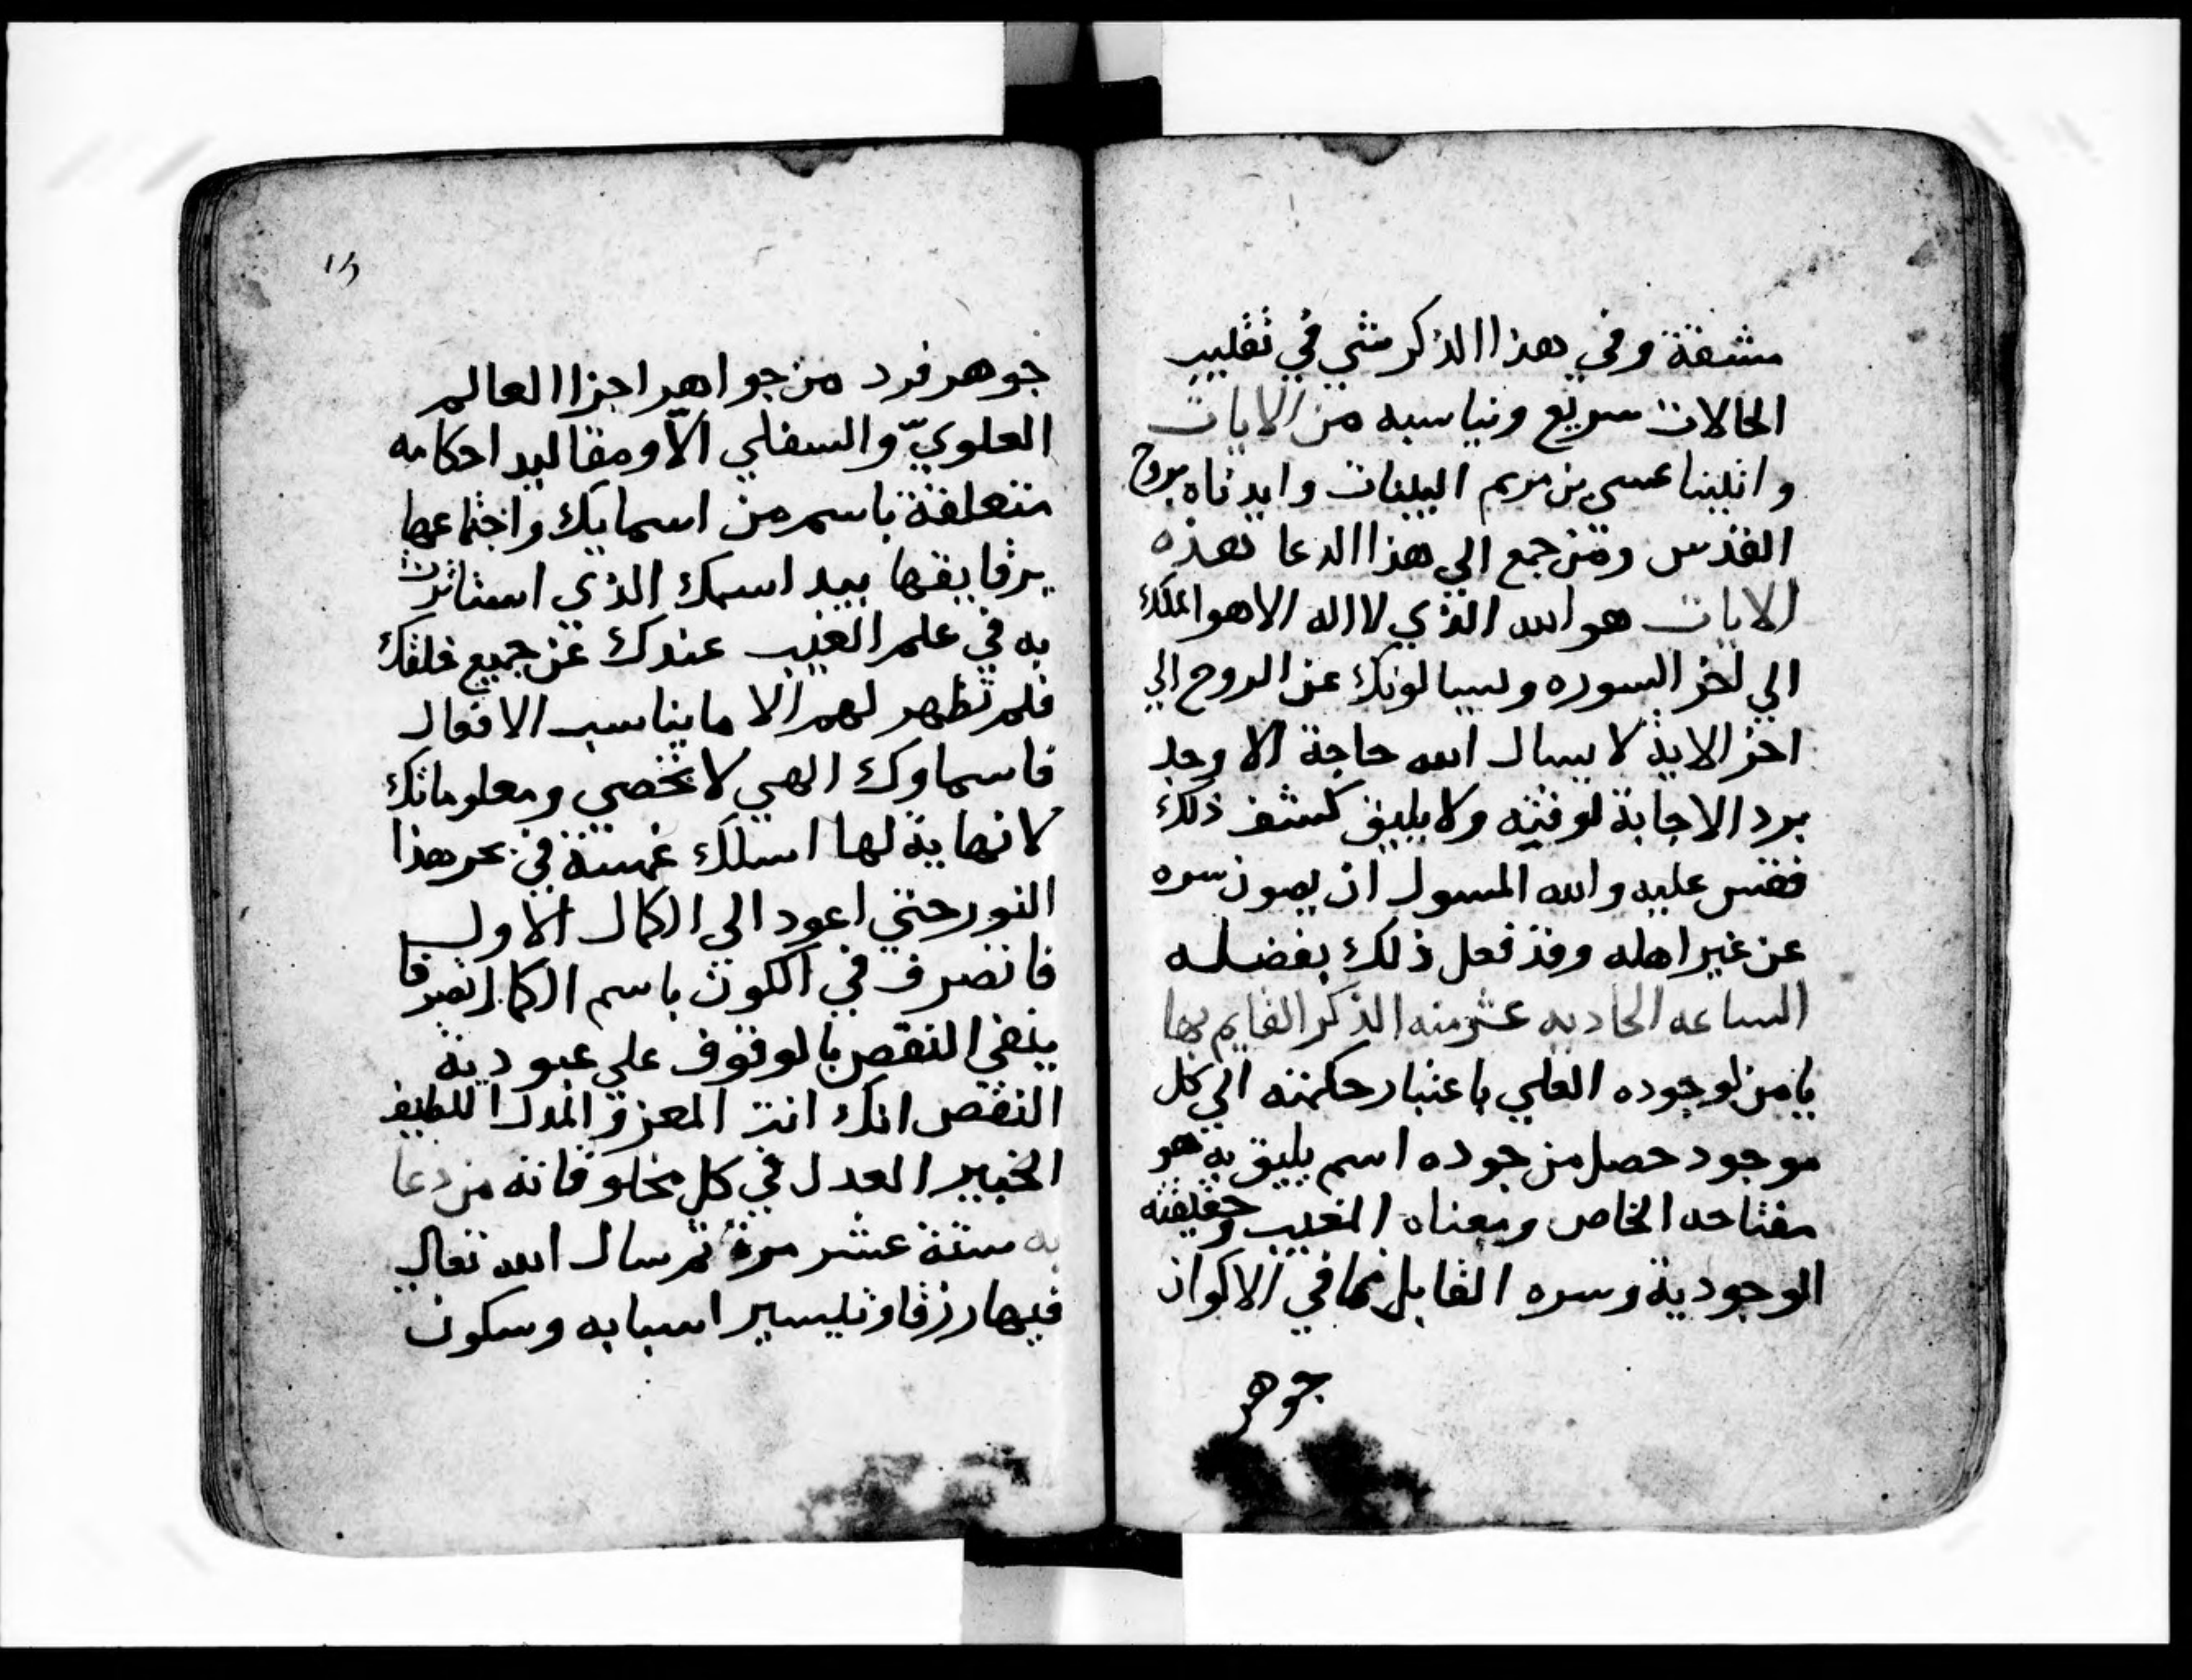 مشقة وفي هذا الذكر شي في تقليب
الحالات سريع ويناسبه من الايات
واتينا عيسى بن مريم البينات وايدناه بروح
القدس ومن جمع الي هذا الدعا هذه
الايات هو الله الذي لا اله الا هو الملك
الي اخر السوره ويسالونك عن الروح الي
اخر الاية لا يسال الله حاجة الا وجد
برد الاجابة لوقته ولا يليق كشف ذلك
فقس عليه والله المسول ان يصون سره
عن غير اهله وقد فعل ذلك بفضله
الساعه الحاديه عشر منه الذكر القايم بها
يامن لوجوده العلي باعتبار حكمته الي كل
موجود حصل من جوده اسم يليق به هو
مفتاحه الخاص ومعناه المغيب وحقيقته
الوجودية وسره القابل فما في الاكوان
جوهر
جوهر فرد من جواهر اجزا العالم
العلويّ والسفلي الّا ومقاليد احكامه
متعلقة باسم من اسمايك واجتماعها
برقايقها بيد اسمك الذي استاثرت
به في علم الغيب عندك عن جميع خلقك
فلم تظهر لهم الا ما يناسب الافعال
فاسماوك الهي لا تحصي ومعلوماتك
لا نهاية لها اسلك غمسة في بحر هذا
النور حتي اعود الي الكمال الاول
فاتصرف في الكون باسم الكمال تصرفا
ينفي النقص بالوقوف علي عبودية
النقص انك انت المعز والمذل اللطيف
الخبير العدل في كل مخلوقاته من دعا
به ستة عشر مرة ثم سال الله تعالي
فيها رزقا وتيسير اسبابه وسكون